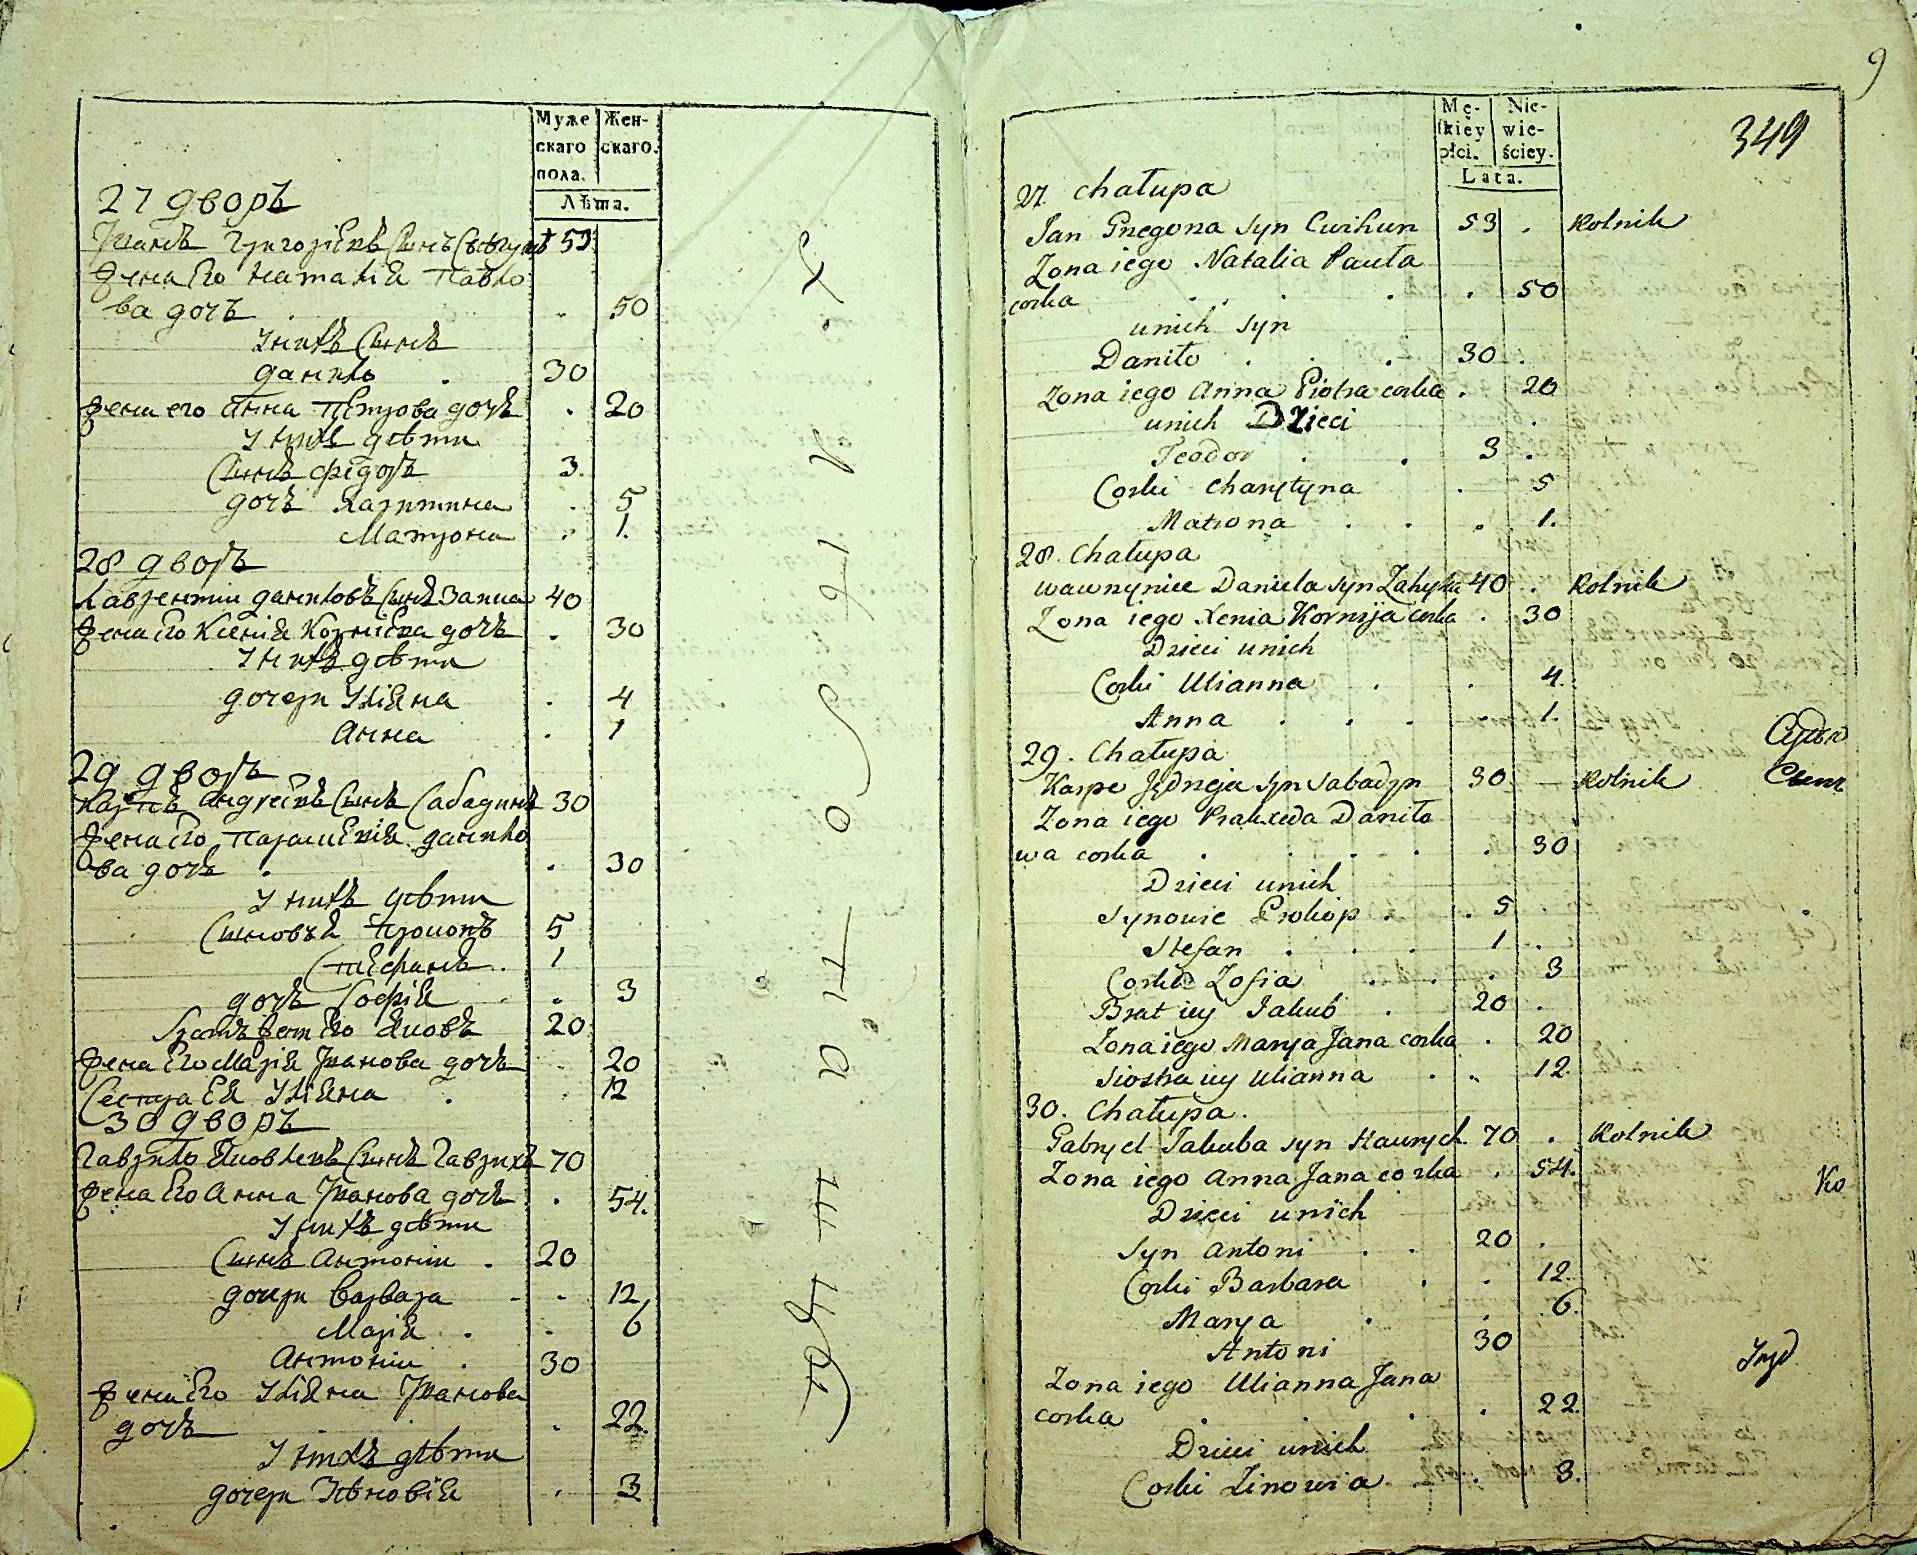 Муже
скаго
пола.
Жен-
скаго.
Лѣта.
27 дворъ
Иванъ Григоріевъ Сынъ Свѣгунъ 53
Жена Его Наталія Павло
ва дочь . . 50
У нихъ Сынъ
Данило . 30
Жена его Анна Петрова дочь . 20
У нихъ дѣти
Сынъ Федоръ 3.
дочь Харитина . 5
Матрона . 1.
28 дворъ
Лаврентіи Даниловъ Сынъ 40
Жена Его Ксенія Корніева дочь . 30
У нихъ дѣти
дочери Уліяна . 4
Анна . 1
29 дворъ
Карпъ Андреевъ Сынъ Сабадинъ 30
Жена Его Параскевія Данило
ва дочь . . 30
У нихъ дѣти
Сыновья Прокопъ 5
Стефанъ . 1
дочь Софія . 3
братъ Его Яковъ 20
Жена Его Марія Иванова дочь . 20
Сестра Ея Уліяна . . 12
30 дворъ
Гаврило Яковлевъ Сынъ Гаврихъ 70
Жена Его Анна Иванова дочь . 54.
У нихъ дѣти
Сынъ Антоніи . 20
дочери Варвара - - 12
Марія . . 6
Антоніи . 30
Жена Его Уліяна Иванова
дочь . 22.
У нихъ дѣти
дочери Зѣновія . 3
9
349
Mę-
ſkiey
płci.
Nie-
wie-
ściey.
Lata.
27. Chałupa
Jan Gregora syn Cwihun 53 . Rolnik
Zona iego Natalia Pauła
corka . . . . . 50
unich syn
Daniło . . . 30 .
Zona iego Anna Piotra corka . 20
unich Dzieci
Teodor . . 3 .
Corki Charytyna . 5
Matrona . . . 1.
28. Chałupa
Wawryniec Daniela syn 40 . Rolnik
Zona iego Xenia Kornija corka . 30
Dzieci unich
Corki Ulianna . . 4.
Anna . . . . 1.
29. Chałupa
Karpo Jędrzeja syn Sabadyn 30 — Rolnik
Zona iego Praxeda Daniło
wa corka . . . . 30
Dzieci unich
Synowie Prokop . . 5 .
Stefan . . . 1 .
Corka Zofia . . . 3
Brat iey Jakub . 20 .
Zona iego Marya Jana corka . 20
Siostra iey Ulianna . . 12.
30. Chałupa.
Gabryel Jakuba syn Hawrych 70 . Rolnik
Zona iego Anna Jana corka . 54.
Dzieci unich
Syn Antoni . . 20 .
Corki Barbara . . 12.
Marya . . 6.
Antoni 30
Zona iego Ulianna Jana
corka . . . 22.
Dzieci unich
Corki Zinowia . . 3.
Ko